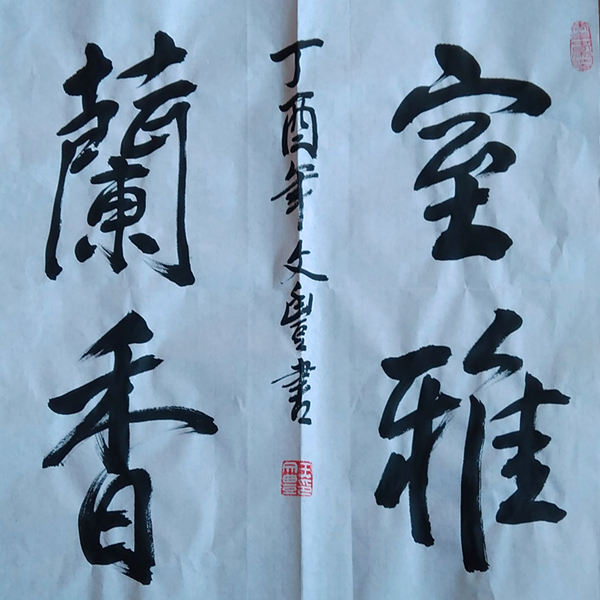 室雅
蘭香
丁酉年文豐書